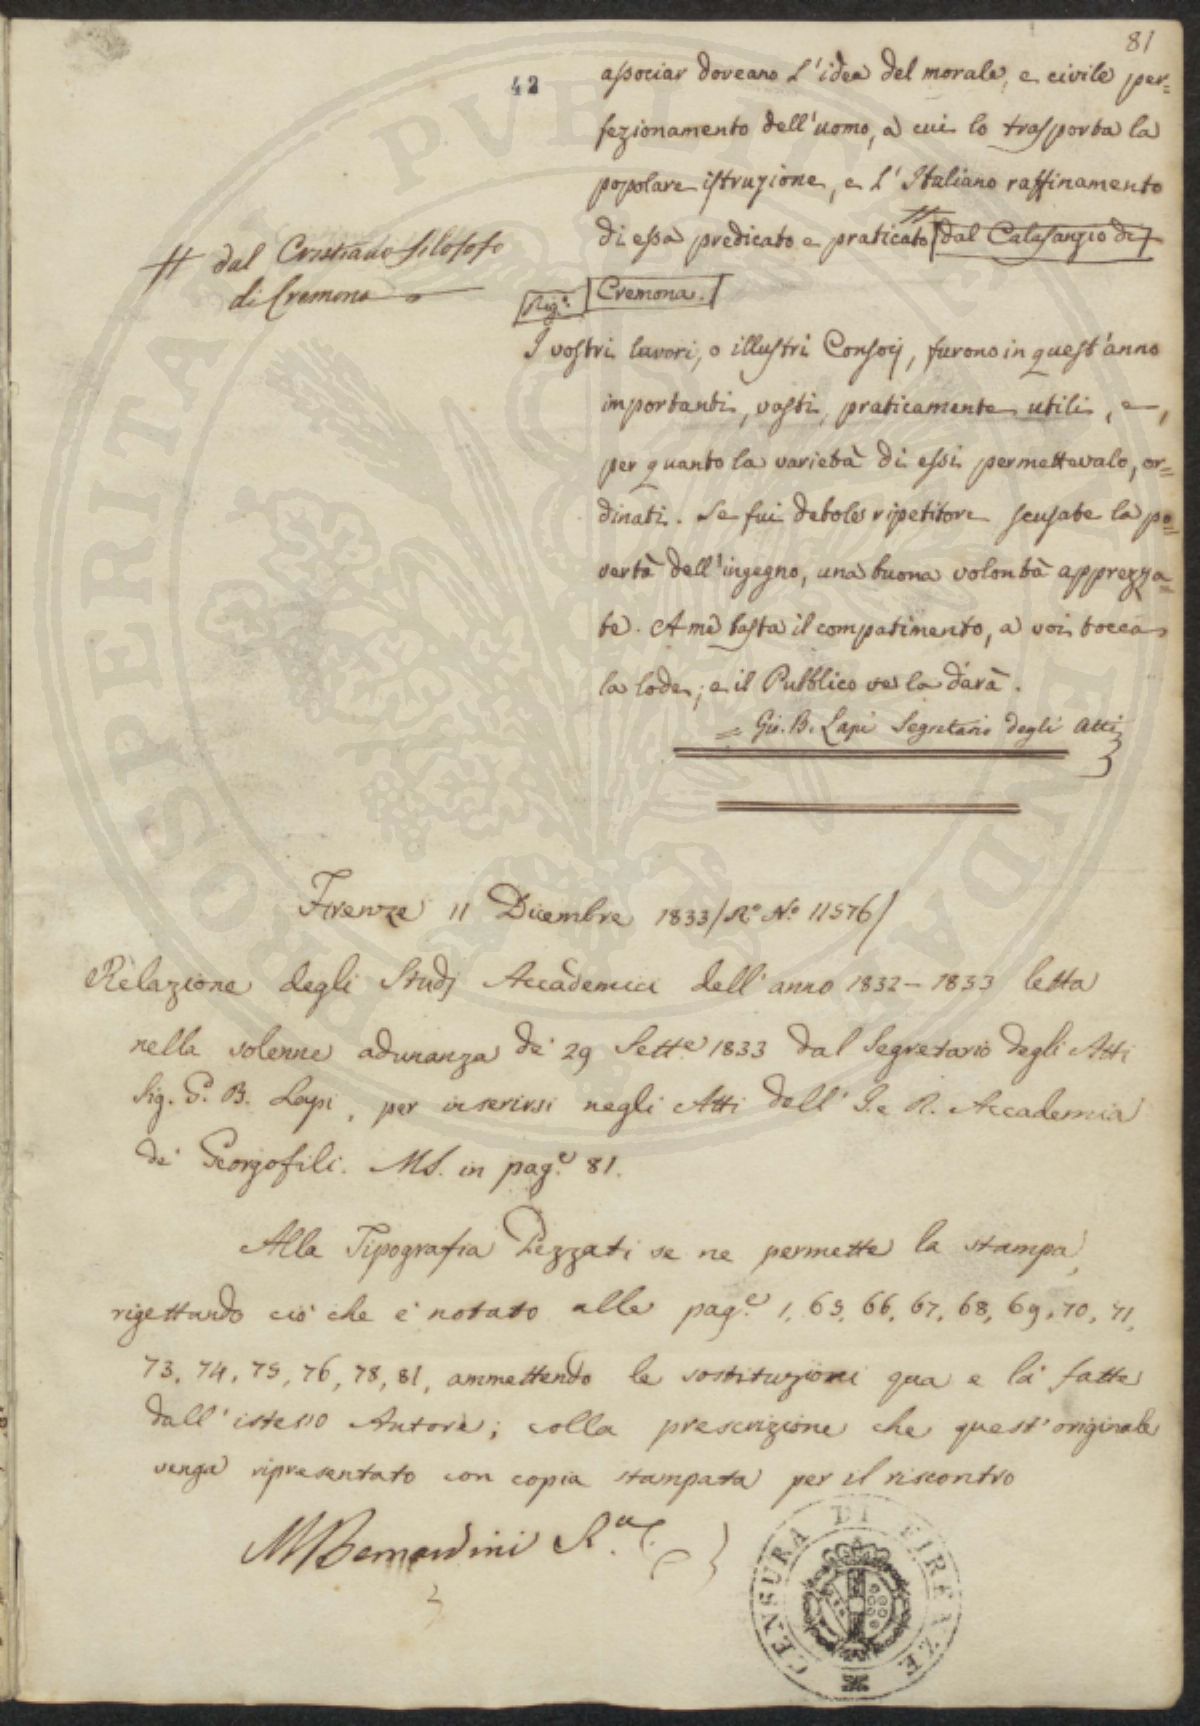 81
42
associar doveano l'idea del morale, e civile per=
fezionamento dell'uomo, a cui lo trasporta la
popolare istruzione, e l'Italiano raffinamento
di essa predicato e praticato # dal Calasanzio di
Cremona.
# dal Cristiano filosofo
di Cremona
Rig.
I vostri lavori, o illustri Consocj, furono in quest'anno
importanti, vasti, praticamente utili, e,
per quanto la varietà di essi permettevalo, or=
dinati. Se fui debole ripetitore scusate la po=
vertà dell'ingegno, una buona volontà apprezza=
te. A me basta il compatimento, a voi tocca
la lode; e il Pubblico ve la darà.
= Gio. B. Lapi Segretario degli Atti
Firenze 11 Dicembre 1833 / R.º N.º 11576 /
Relazione degli Studj Accademici dell'anno 1832-1833 letta
nella solenne adunanza de' 29 Sett.e 1833 dal Segretario degli Atti
Sig. G. B. Lapi, per inserirsi negli Atti dell' I. e R. Accademia
de' Georgofili. MS. in pag.e 81.
Alla Tipografia Pezzati se ne permette la stampa,
rigettando ciò che è notato alle pag.e 1, 65, 66, 67, 68, 69, 70, 71,
73, 74, 75, 76, 78, 81, ammettendo le sostituzioni qua e là fatte
dall'istesso Autore; colla prescrizione che quest'originale
venga ripresentato con copia stampata per il riscontro
M Bernardini R.
CENSURA DI FIRENZE
PROSPERITATI PUBLICAE AUGENDAE